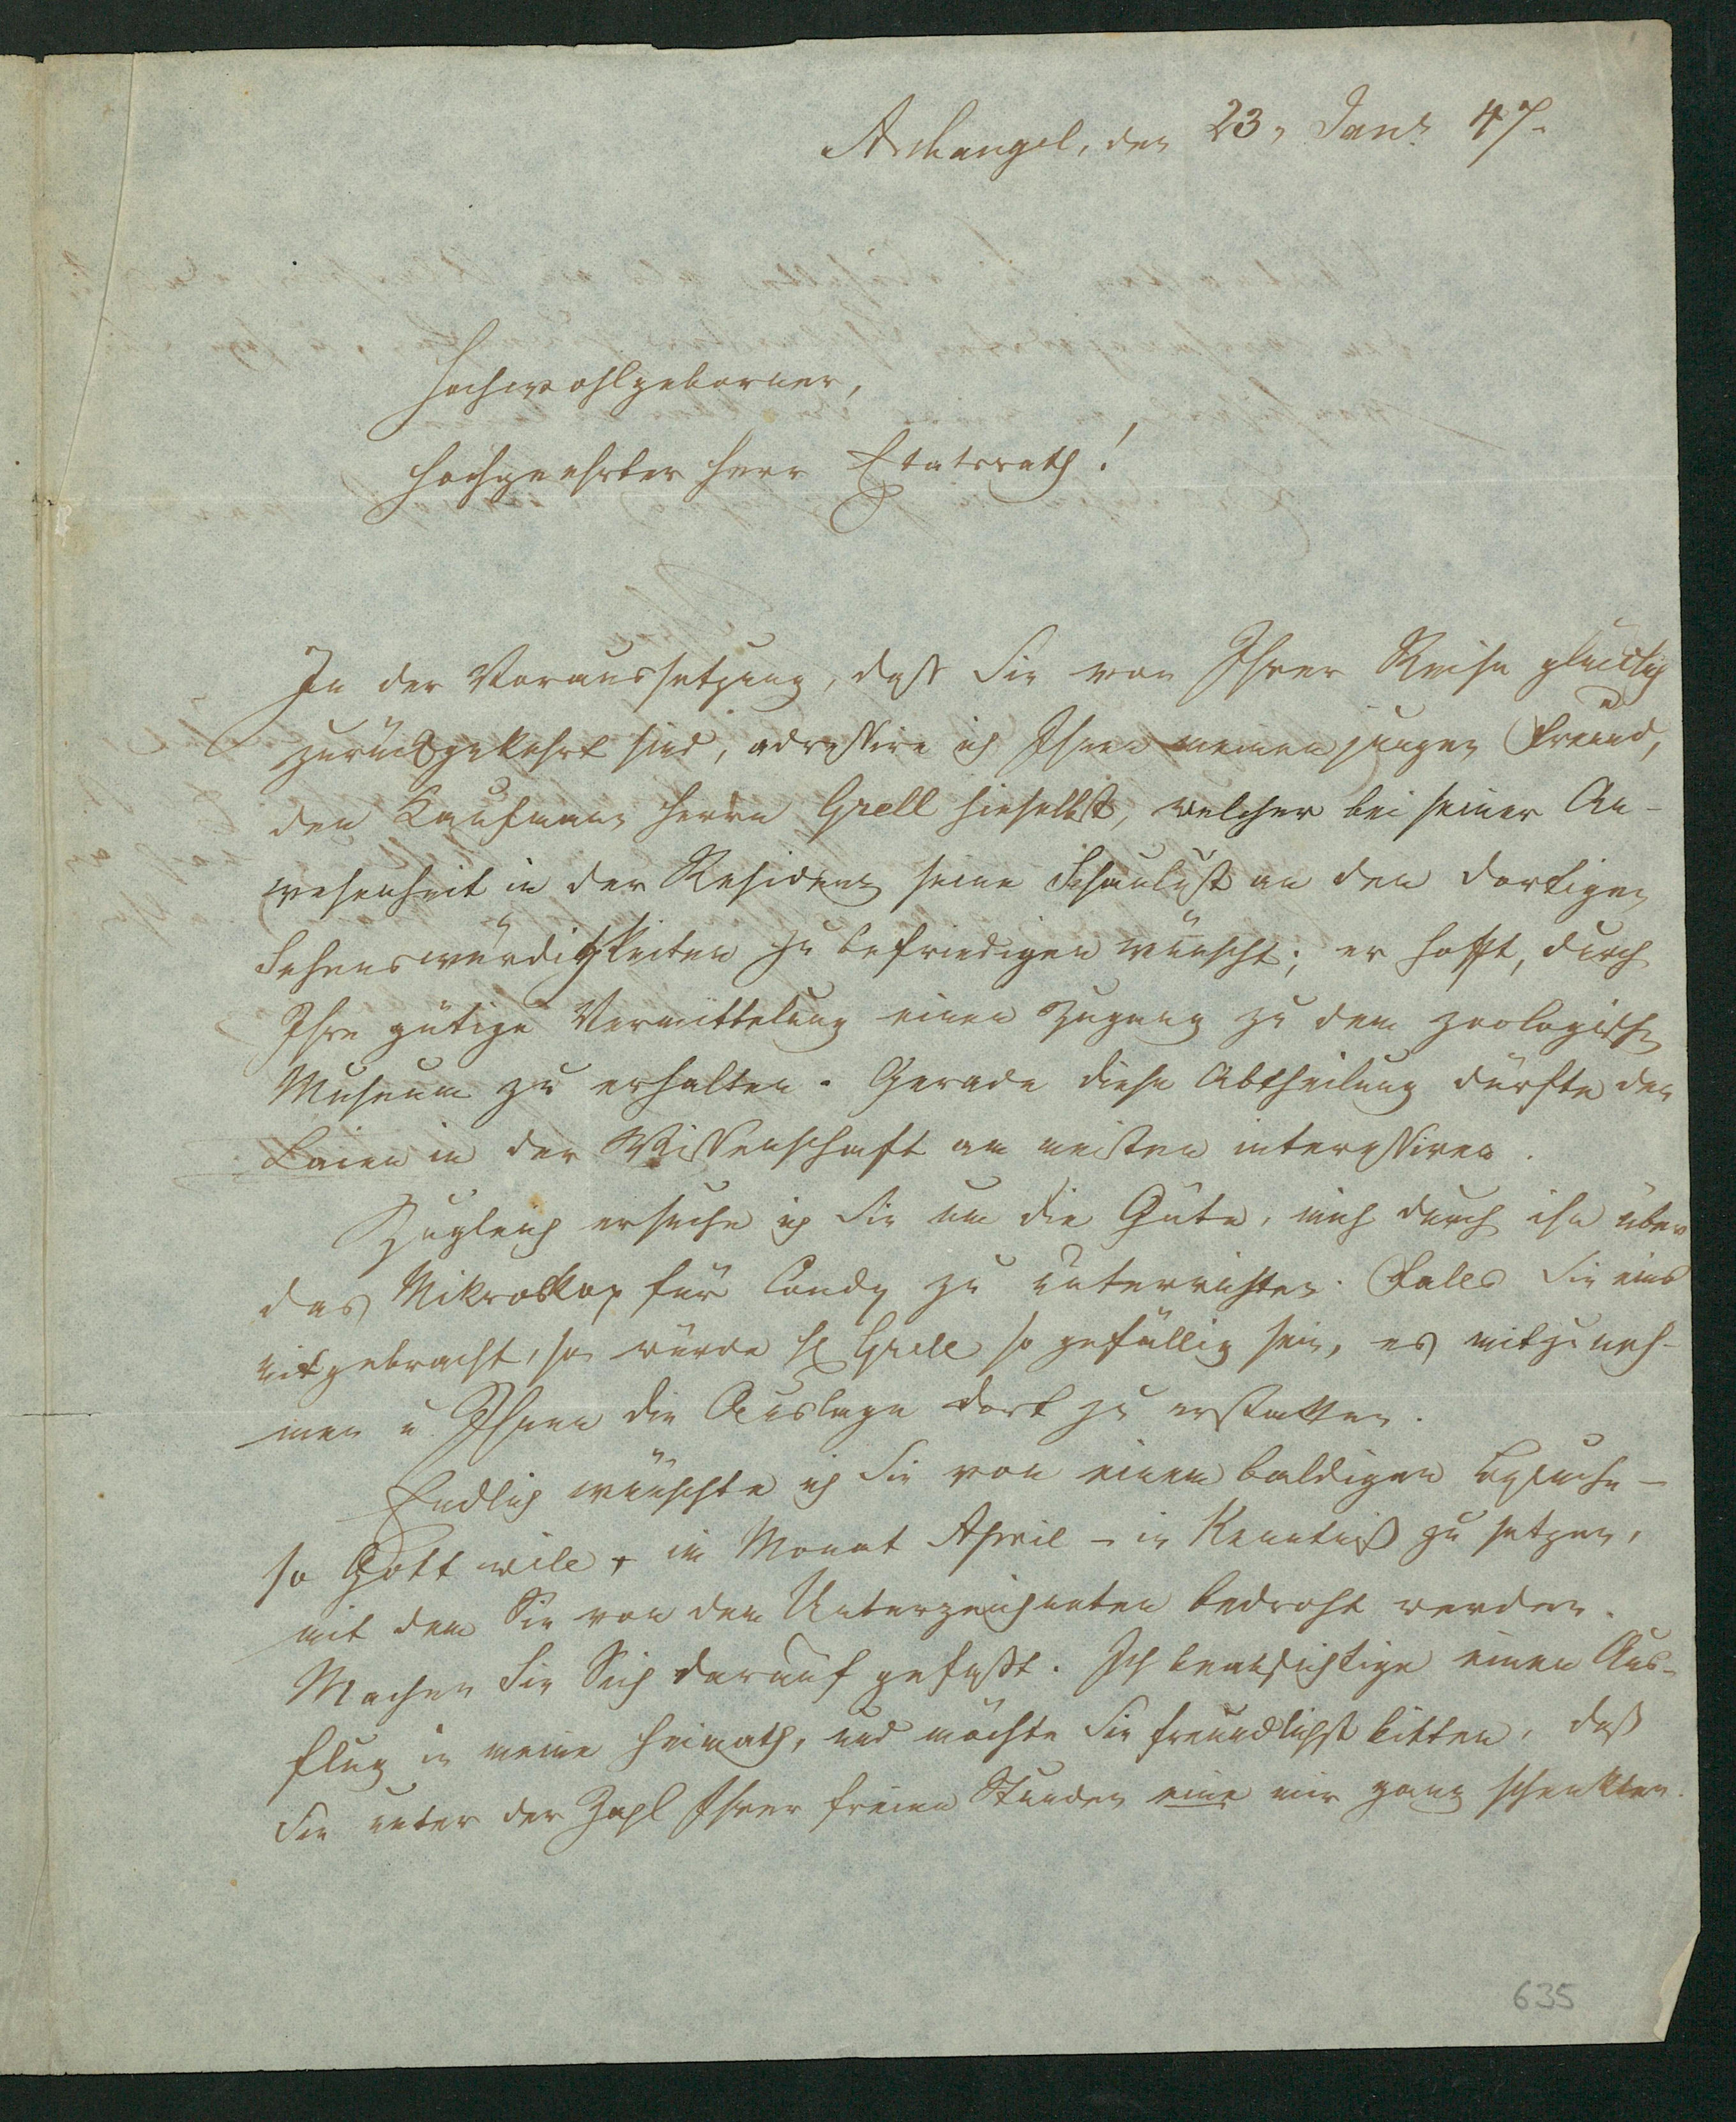 Archangel, den 23. Janr 47.
Hochwohlgeborner,
Hochgeehrter Herr Etatsrath!
In der Voraussetzung, daß Sie von Ihrer Reise glücklich
zurückgekehrt sind, adressire ich Ihnen meinen jungen Freund,
den Kaufmann Herrn Grell hieselbst, welcher bei seiner An-
wesenheit in der Residenz seine Schaulust an den dortigen
Sehenswürdigkeiten zu befriedigen wünscht; er hofft, durch
Ihre gütige Vermittelung einen Zugang zu dem zoologischen
Museum zu erhalten. Gerade diese Abtheilung dürfte den
Laien in der Wissenschaft am meisten interessiren.
Zugleich ersuche ich Sie um die Güte, mich durch ihn über
das Mikroskop für Landy zu unterrichten. Falls Sie eins
mitgebracht, so würde H Grell so gefällig sein, es mitzuneh-
men u Ihnen die Auslage dort zu erstatten.
Endlich wünschte ich Sie von einem baldigen Besuche -
so Gott will, im Monat April - in Kenntniß zu setzen,
mit dem Sie von dem Unterzeichneten bedroht werden.
Machen Sie Sich darauf gefaßt. Ich beabsichtige einen Aus-
flug in meine Heimath, und möchte Sie freundlichst bitten, daß
Sie unter der Zahl Ihrer freien Stunden eine mir ganz schenkten.
635